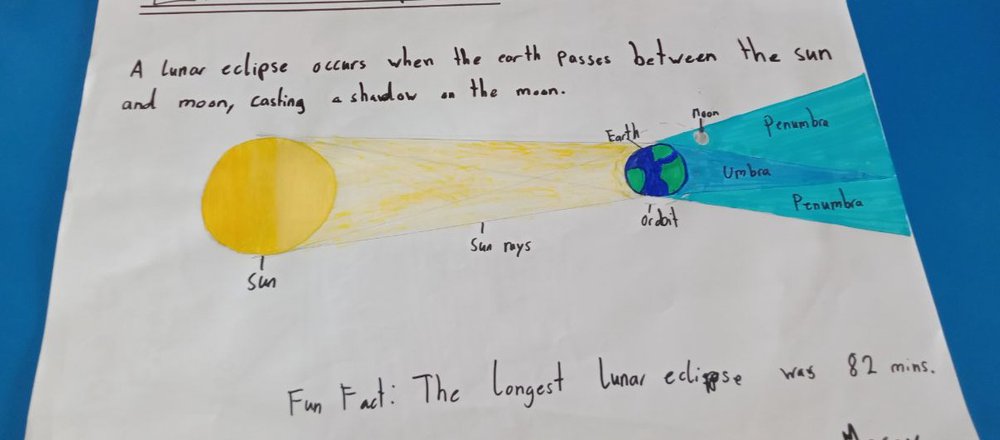 A lunar eclipse occurs when the earth passes between the sun
and moon, casting a shadow on the moon.
Moon
Earth
Penumbra
Umbra
Penumbra
orbit
Sun rays
Sun
Fun Fact: The longest lunar eclipse was 82 mins.